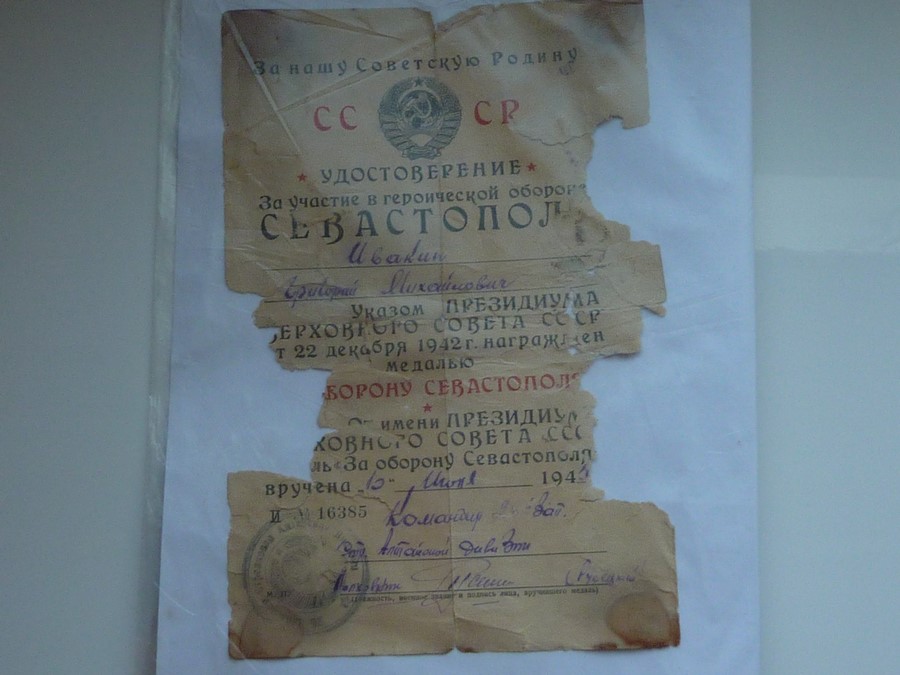 За нашу Советскую Родину
СС СР
УДОСТОВЕРЕНИЕ
За участие в героической оборон
СЕВАСТОПОЛ
Ивакин
Григорий Михайлович
Указом ПРЕЗИДИУМА
ЕРХОВНОГО СОВЕТА СССР
т 22 декабря 1942 г. награжден
медалью
БОРОНУ СЕВАСТОПОЛ
От имени ПРЕЗИДИУМ
ХОВНОГО СОВЕТА ССС
ль „За оборону Севастополя
вручена „10" Июля 194
И № 16385 Командир
полковник
должность, воинское звание и подпись лица, вручившего медаль)